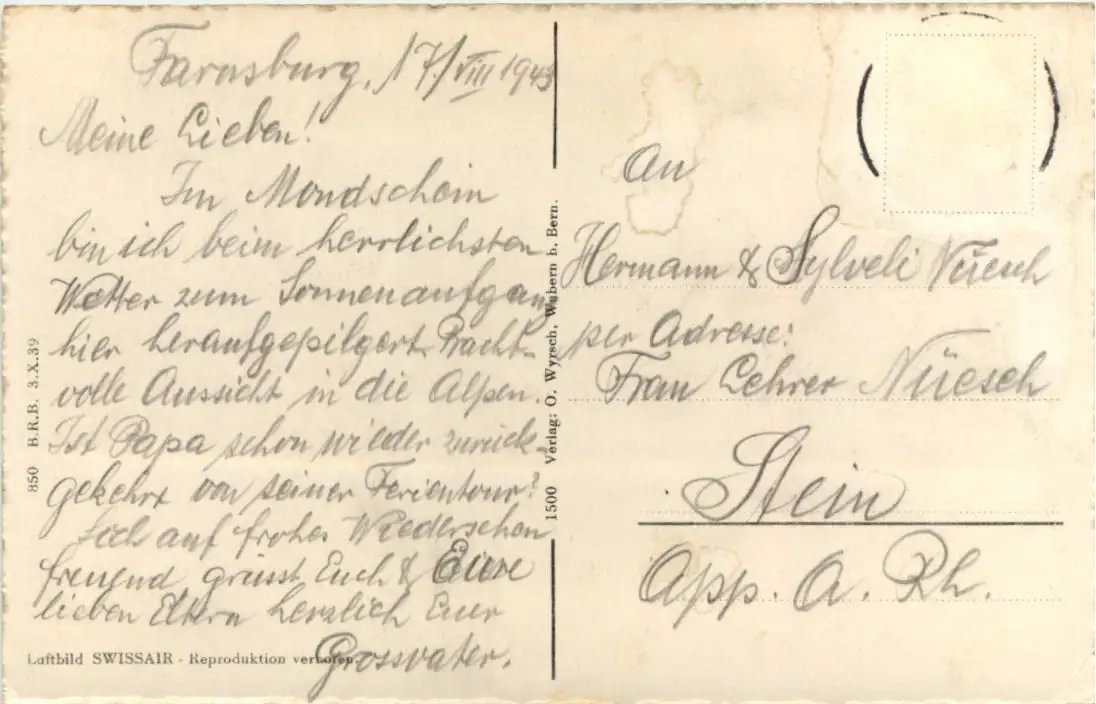 Farnsburg, 17/VIII 1943
Meine Lieben!
Im Mondschein
bin ich beim herrlichsten
Wetter zum Sonnenaufgang
hier heraufgepilgert. Pracht-
volle Aussicht in die Alpen.
Ist Papa schon wieder zurück-
gekehrt von seiner Ferientour?
Sich auf frohes Wiedersehen
freuend grüsst Euch & Eure
lieben Eltern herzlich Euer
Grossvater.
Luftbild SWISSAIR - Reproduktion verboten.
850 B.R.B. 3.X.39
1500 Verlag: O. Wyrsch, Wabern b. Bern.
An
Hermann & Sylveli Nüesch
per Adresse:
Frau Lehrer Nüesch
Stein
App. A. Rh.